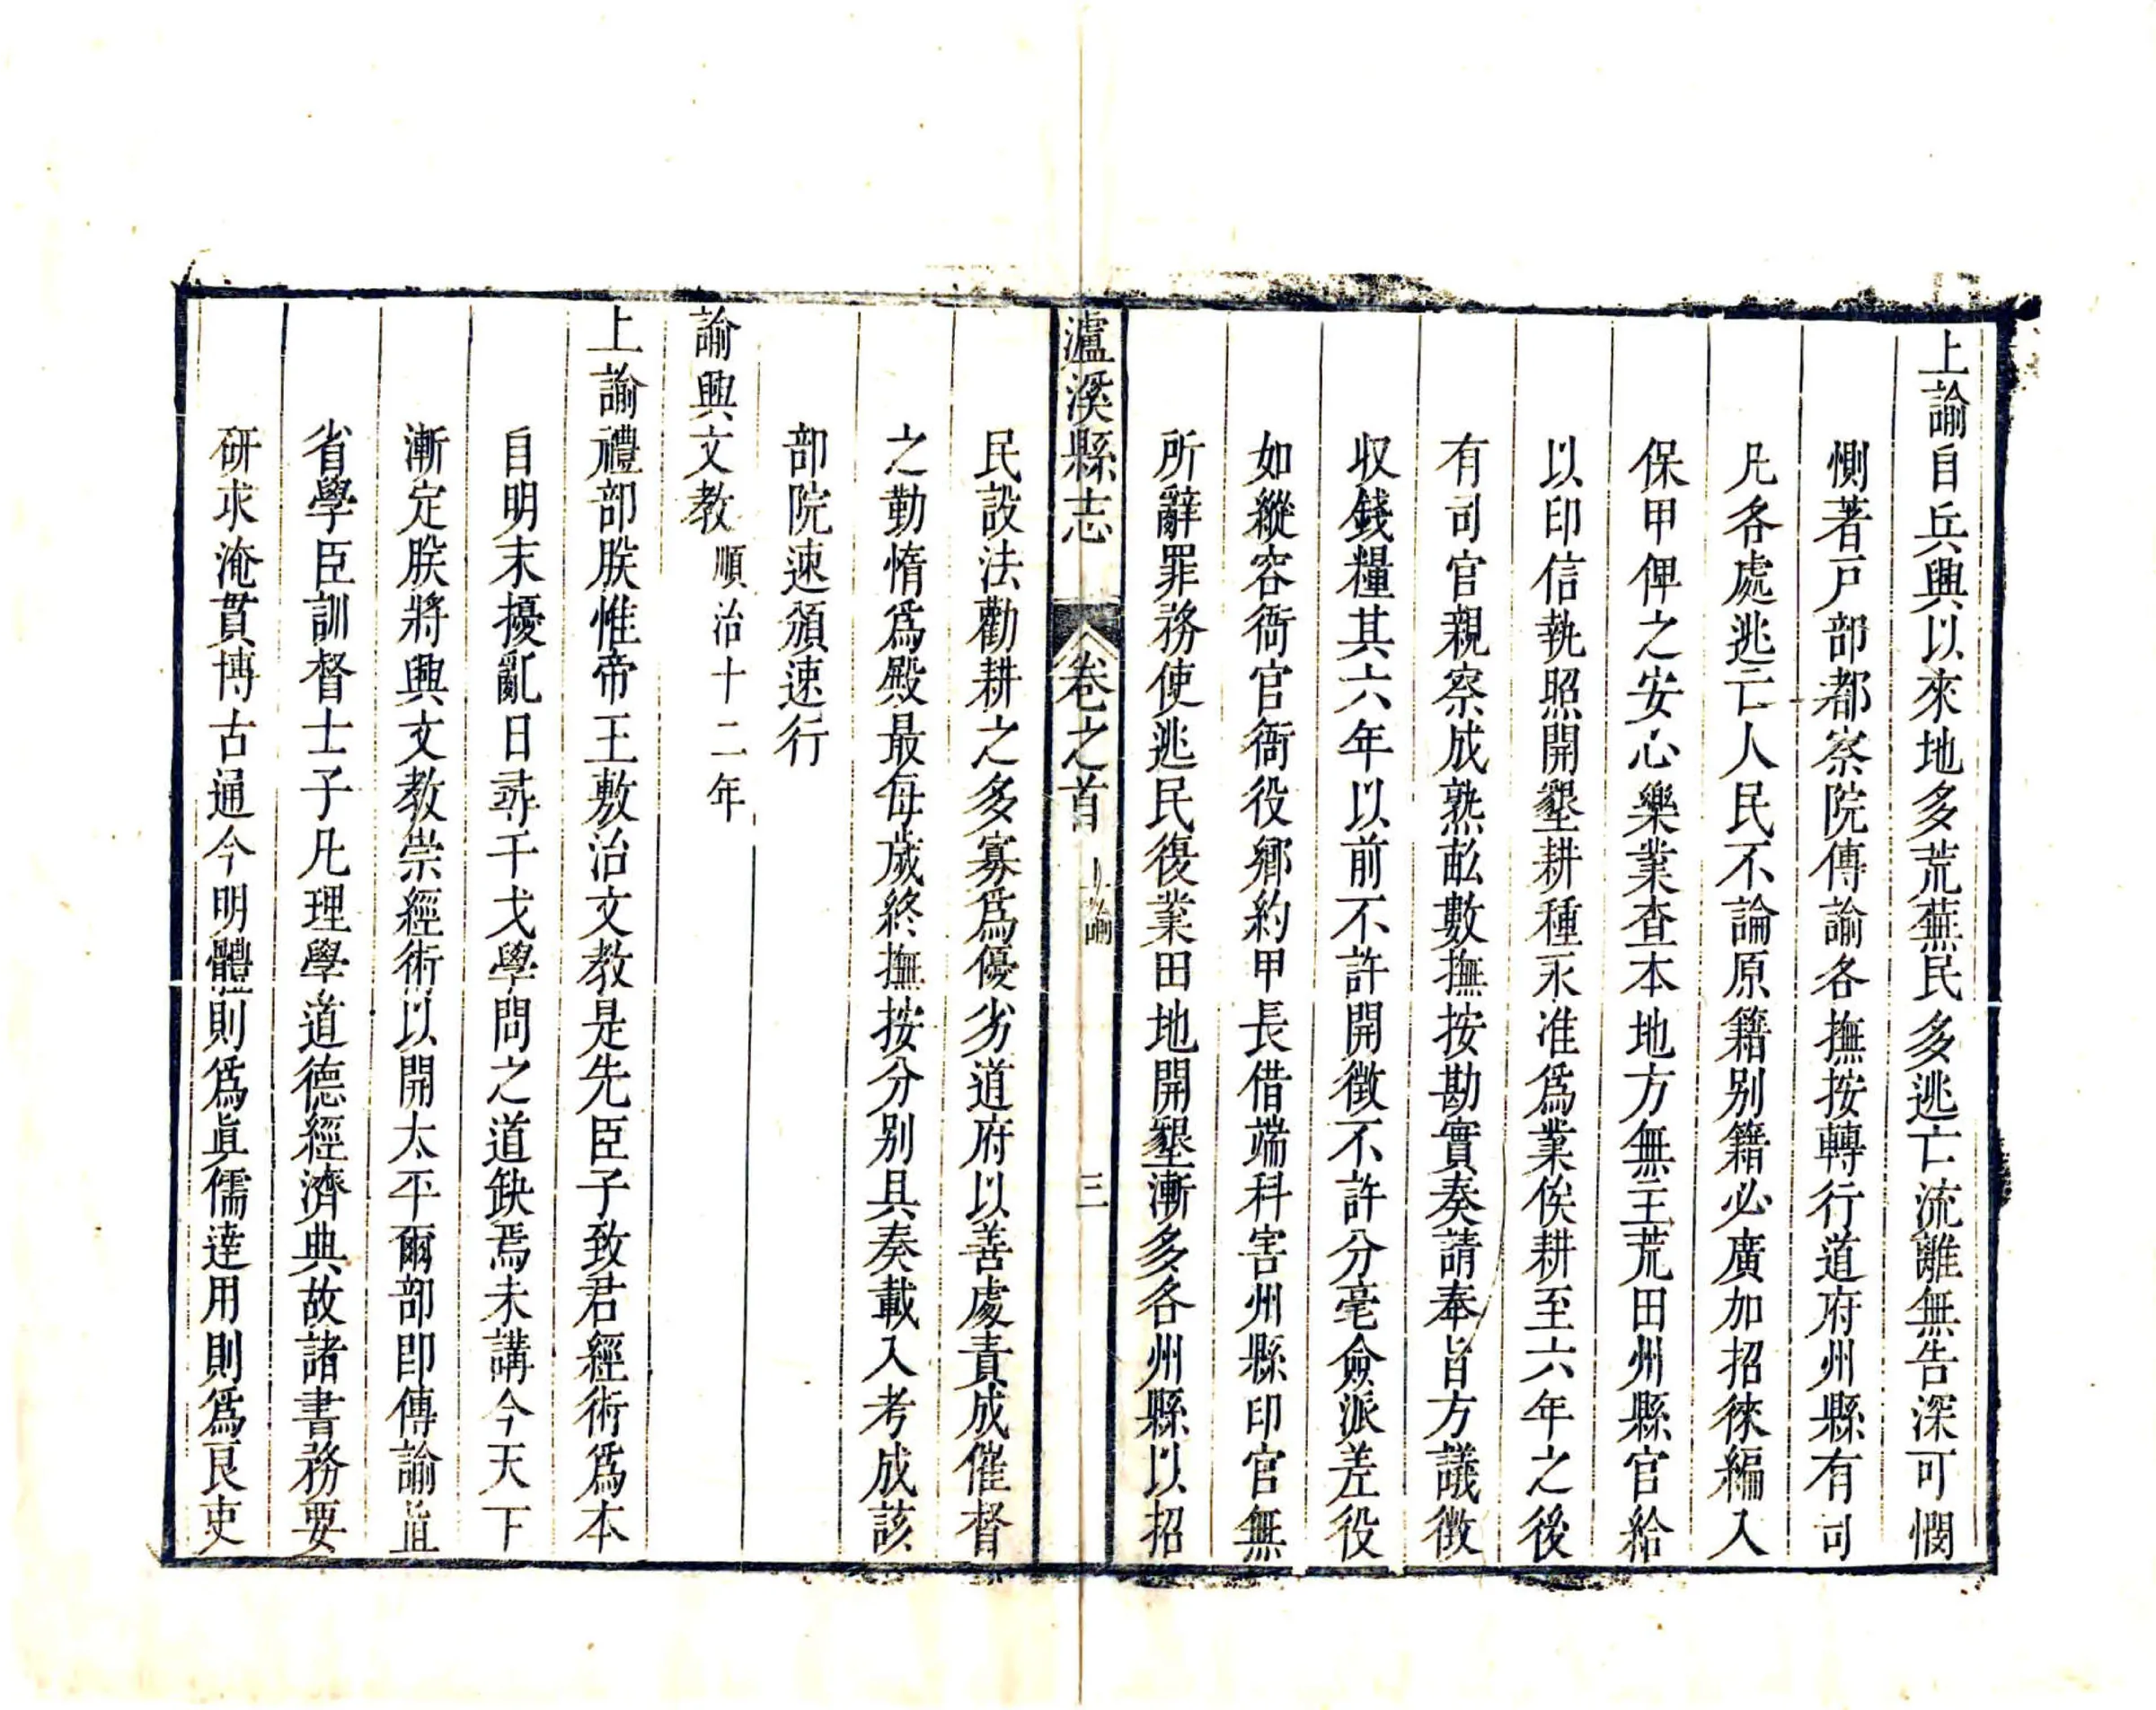 上諭自兵興以來地多荒蕪民多逃亡流離無告深可憫
惻著戸部都察院傳諭各撫按轉行道府州縣有司
凡各處逃亡人民不論原籍别籍必廣加招徠編入
保甲俾之安心樂業查本地方無主荒田州縣官給
以印信執照開墾耕種永准爲業俟耕至六年之後
有司官親察成熟畝數撫按勘實奏請奉旨方議徴
収錢糧其六年以前不許開徴不許分毫僉派差役
如縱容衙官衙役鄉約甲長借端科害州縣印官無
所辭罪務使逃民復業田地開墾漸多各州縣以招
瀘溪縣志
卷之首
上諭
三
民設法勸耕之多寡爲優劣道府以善處責成催督
之勤惰爲殿最每歲終撫按分别具奏載入考成該
部院速頒速行
諭興文教順治十二年
上諭禮部朕惟帝王敷治文教是先臣子致君經術爲本
自明末擾亂日尋干戈學問之道缺焉未講今天下
漸定朕將興文教崇經術以開太平爾部卽傳諭直
省學臣訓督士子凡理學道德經濟典故諸書務要
研求淹貫博古通今明體則爲眞儒達用則爲良吏